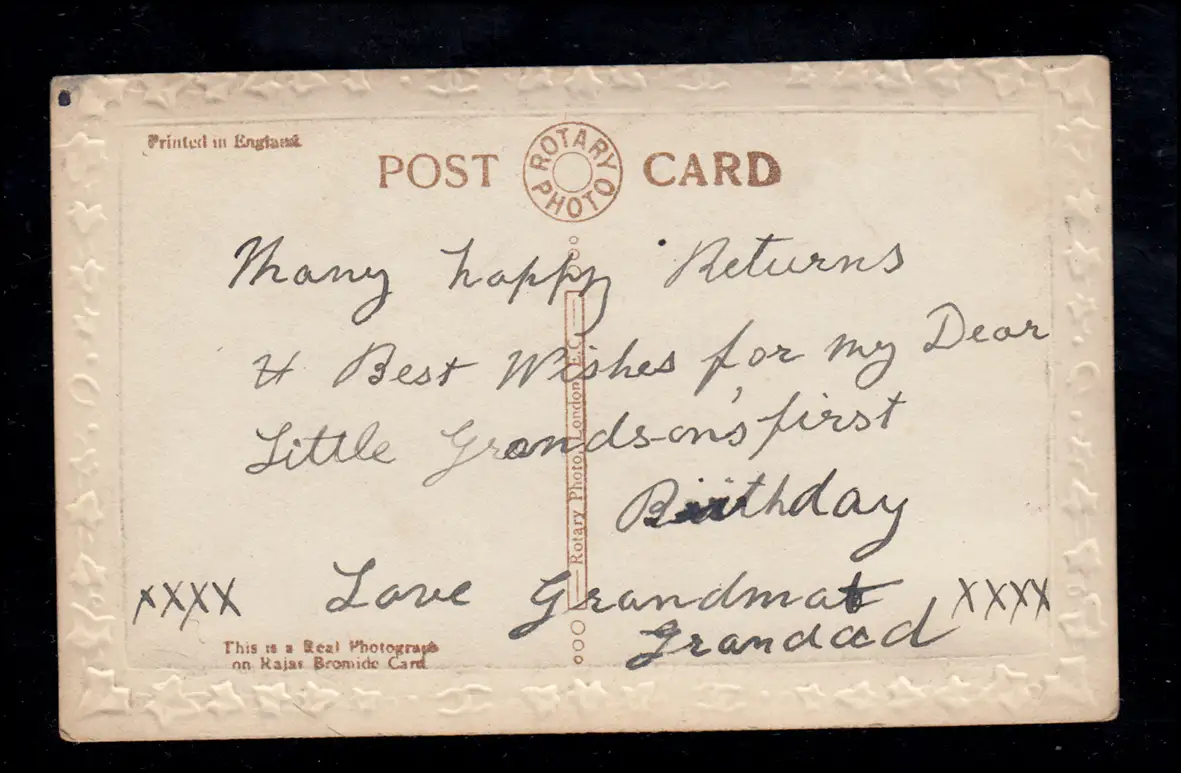 Printed in England
POST ROTARY PHOTO CARD
Many happy Returns
& Best Wishes for my Dear
Little Grandson's first
Birthday
Love Grandma &
Grandad
XXXX
XXXX
Rotary Photo, London, E.C.
This is a Real Photograph
on Rajar Bromide Card